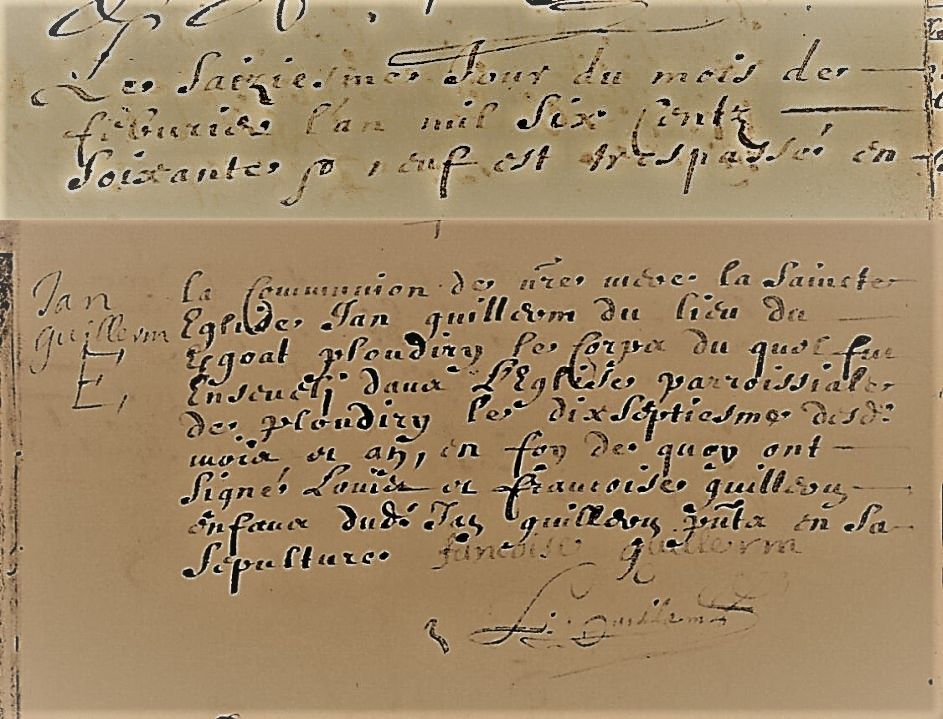 Le Saiziesme Jour du mois de
feburier l'an mil Six Centz
Soixante neuf est trespassé en
la Communion de nre mere la Saincte
Jan
guillerm
E,
Eglide Jan quillerm du lieu du
Ergoat ploudiry le Corps du quel fut
Enseueli dans L'Eglise parroissiale
de ploudiry le dixseptiesme desdt
mois et an, en foy de quoy ont
Signé Louis et francoise quillerm
enfans dudt Jan quillerm pnts en Sa
Sepulture francoise guillerm
L. guillerm